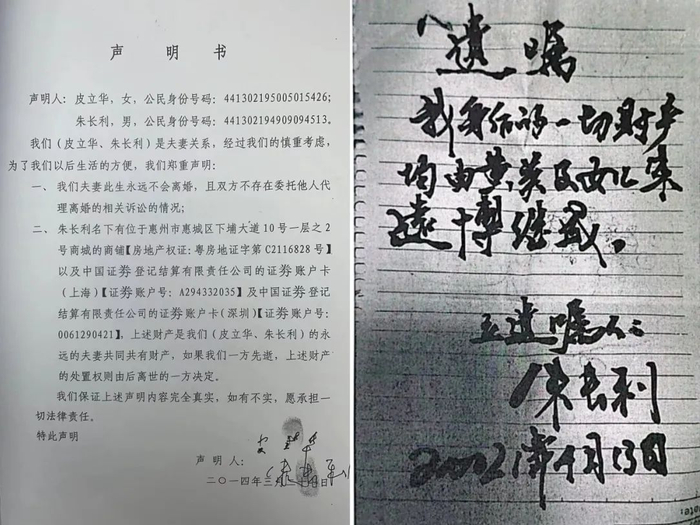 声 明 书
声明人：皮立华，女，公民身份号码：441302195005015426；
朱长利，男，公民身份号码：441302194909094513。
我们（皮立华、朱长利）是夫妻关系，经过我们的慎重考虑，
为了我们以后生活的方便，我们郑重声明：
一、 我们夫妻此生永远不会离婚，且双方不存在委托他人代
理离婚的相关诉讼的情况；
二、 朱长利名下有位于惠州市惠城区下埔大道10号一层之2
号商城的商铺【房地产权证：粤房地证字第C2116828号】
以及中国证劵登记结算有限责任公司的证劵账户卡
（上海）【证劵账户号：A294332035】及中国证劵登记
结算有限责任公司的证劵账户卡（深圳）【证劵账户号：
0061290421】，上述财产是我们（皮立华、朱长利）的永
远的夫妻共同共有财产，如果我们一方先逝，上述财产
的处置权则由后离世的一方决定。
我们保证上述声明内容完全真实，如有不实，愿承担一
切法律责任。
特此声明
声 明 人：
朱长利
二〇一四年三月 日
遺嘱
我身后的一切财产
均由黄英及女儿朱
遠博继承。
立遺嘱人：
朱长利
年4月 日